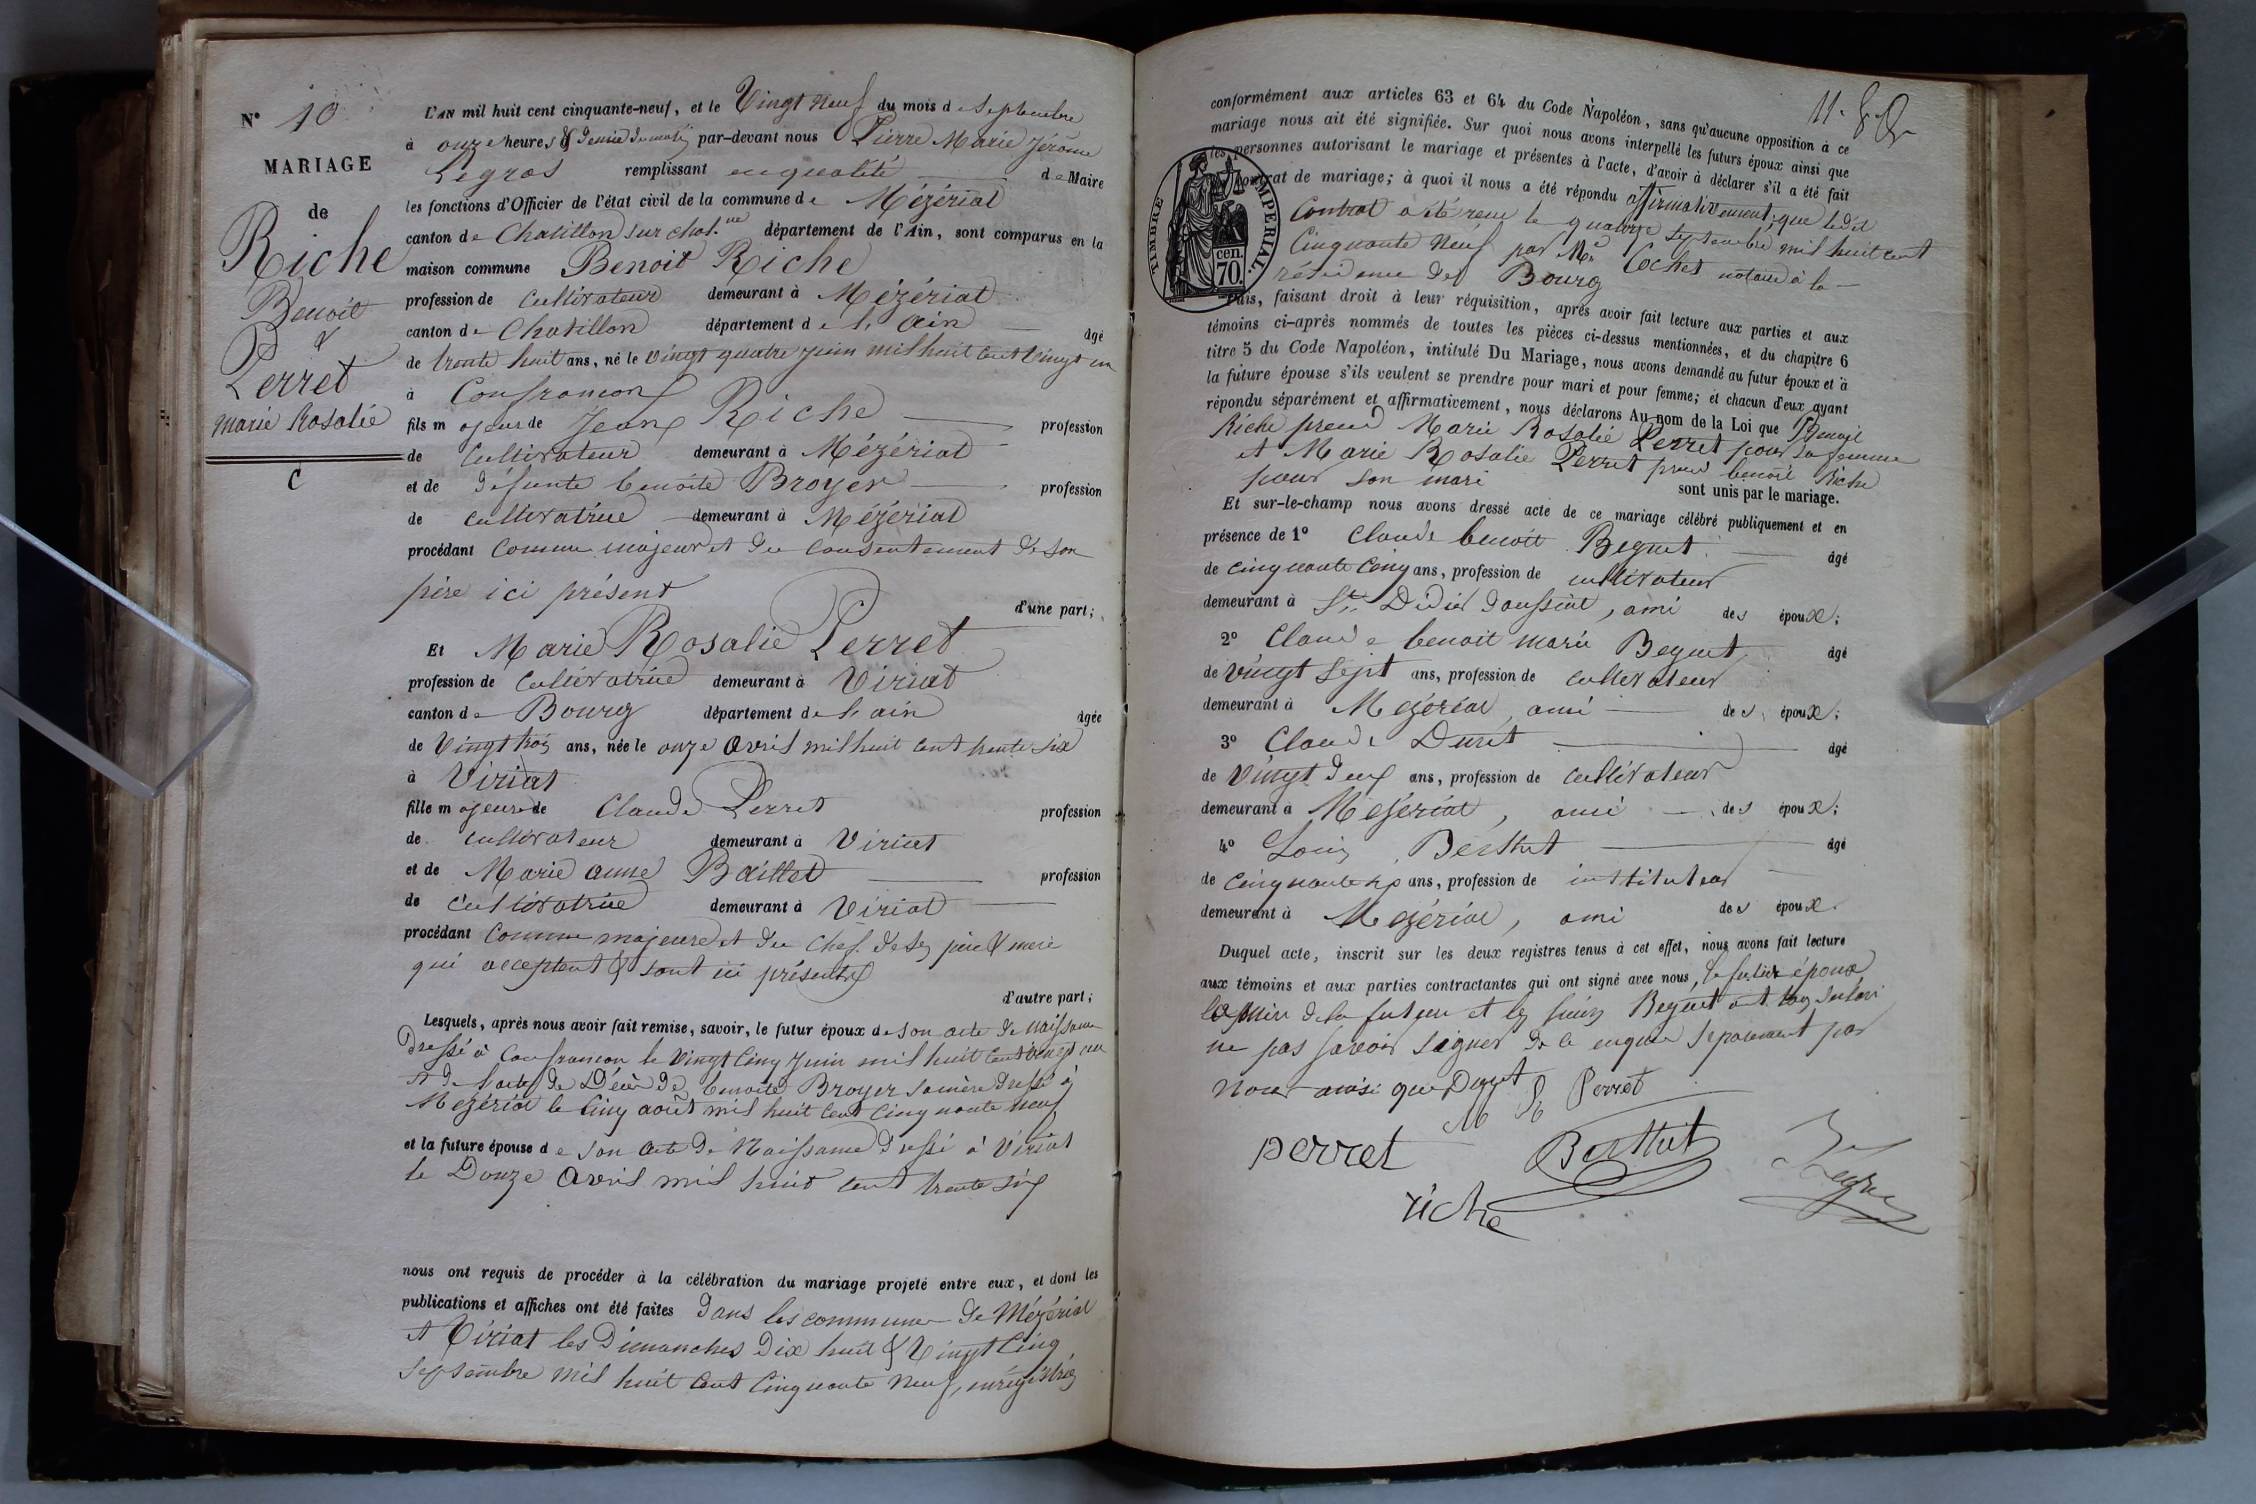 N° 10
MARIAGE
de
Riche
Benoit
&
Perret
marie Rosalie
C
L'AN mil huit cent cinquante-neuf, et le Vingt neuf du mois de Septembre
à onze heures & demie du matin par-devant nous Pierre Marie Jérôme
Legros remplissant en qualité de Maire
les fonctions d'Officier de l'état civil de la commune de Mézériat
canton de Chatillon sur chal.ne département de l'Ain, sont comparus en la
maison commune Benoit Riche
profession de cultivateur demeurant à Mézériat
canton de Chatillon département de l'ain âgé
de trente huit ans, né le vingt quatre juin mil huit cent vingt un
à Confrançon
fils majeur de Jean Riche profession
de Cultivateur demeurant à Mézériat
et de défunte benoite Broyer profession
de cultivatrice demeurant à Mézériat
procédant comme majeur et du consentement de son
père ici présent
d'une part;
Et Marie Rosalie Perret
profession de cultivatrice demeurant à Viriat
canton de Bourg département de l'ain âgée
de Vingt trois ans, née le onze avril mil huit cent trente six
à Viriat
fille majeure de Claude Perret profession
de cultivateur demeurant à Viriat
et de Marie anne Baillet profession
de cultivatrice demeurant à Viriat
procédant comme majeure et du de ses père & mère
qui acceptent & sont ici présents
d'autre part;
Lesquels, après nous avoir fait remise, savoir, le futur époux de son acte de naissance
dressé à Confrançon le vingt cinq juin mil huit cent vingt un
et de l'acte de Décès de benoite Broyer sa mère dressé à
Mézériat le cinq août mil huit cent cinquante neuf
et la future épouse de son acte de Naissance dressé à Viriat
le Douze avril mil huit cent trente six
nous ont requis de procéder à la célébration du mariage projeté entre eux, et dont les
publications et affiches ont été faites dans les communes de Mézériat
et Viriat les Dimanches Dix huit & Vingt Cinq
septembre mil huit cent cinquante neuf, enregistrées
11.
conformément aux articles 63 et 64 du Code Napoléon, sans qu'aucune opposition à ce
mariage nous ait été signifiée. Sur quoi nous avons interpellé les futurs époux ainsi que
les personnes autorisant le mariage et présentes à l'acte, d'avoir à déclarer s'il a été fait
contrat de mariage; à quoi il nous a été répondu affirmativement que ledit
TIMBRE IMPERIAL.
cen.
70.
contrat a été reçu le quatorze septembre mil huit cent
cinquante neuf par Me Cochet notaire à la
résidence de Bourg
Puis, faisant droit à leur réquisition, après avoir fait lecture aux parties et aux
témoins ci-après nommés de toutes les pièces ci-dessus mentionnées, et du chapitre 6
titre 5 du Code Napoléon, intitulé Du Mariage, nous avons demandé au futur époux et à
la future épouse s'ils veulent se prendre pour mari et pour femme; et chacun d'eux ayant
répondu séparément et affirmativement, nous déclarons Au nom de la Loi que Benoit
Riche prend Marie Rosalie Perret pour sa femme
et Marie Rosalie Perret prend benoit Riche
pour son mari
sont unis par le mariage.
Et sur-le-champ nous avons dressé acte de ce mariage célébré publiquement et en
présence de 1° Claude benoit Beguet âgé
de cinquante cinq ans, profession de cultivateur
demeurant à St. Didier d'aussiat, ami des époux;
2° Claude benoit marie Beguet âgé
de vingt sept ans, profession de cultivateur
demeurant à Mézériat, ami des époux;
3° Claude Duret âgé
de Vingt deux ans, profession de cultivateur
demeurant à Mézériat, ami des époux;
4° Louis Berthet âgé
de cinquante ans, profession de instituteur
demeurant à Mézériat, ami des époux.
Duquel acte, inscrit sur les deux registres tenus à cet effet, nous avons fait lecture
aux témoins et aux parties contractantes qui ont signé avec nous, le futur époux
la mère de la future et les Beguet ont
ne pas savoir signer de ce enquis séparément par
nous ainsi que Duret
M R Perret
perret
Berthet
Legros
riche